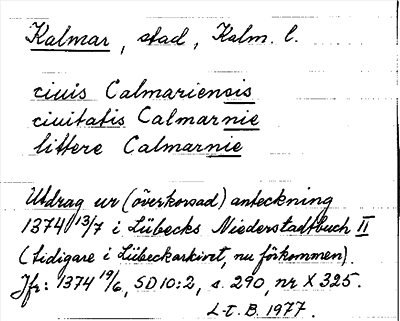 Kalmar, stad, Kalm. l.
ciuis Calmariensis
ciuitatis Calmarnie
littere Calmarnie
Utdrag ur (överkorsad) anteckning
1374 13/7 i Lübecks Niederstadtbuch II
(tidigare i Lübeckarkivet, nu förkommen).
Jfr: 1374 19/6, SD 10:2, s. 290, nr X 325.
L-t. B. 1977.